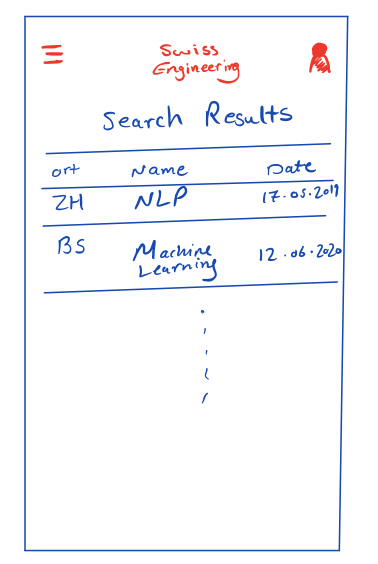 Swiss
Engineering
Search Results
ort Name Date
ZH NLP 17.05.2019
BS Machine Learning 12.06.2020